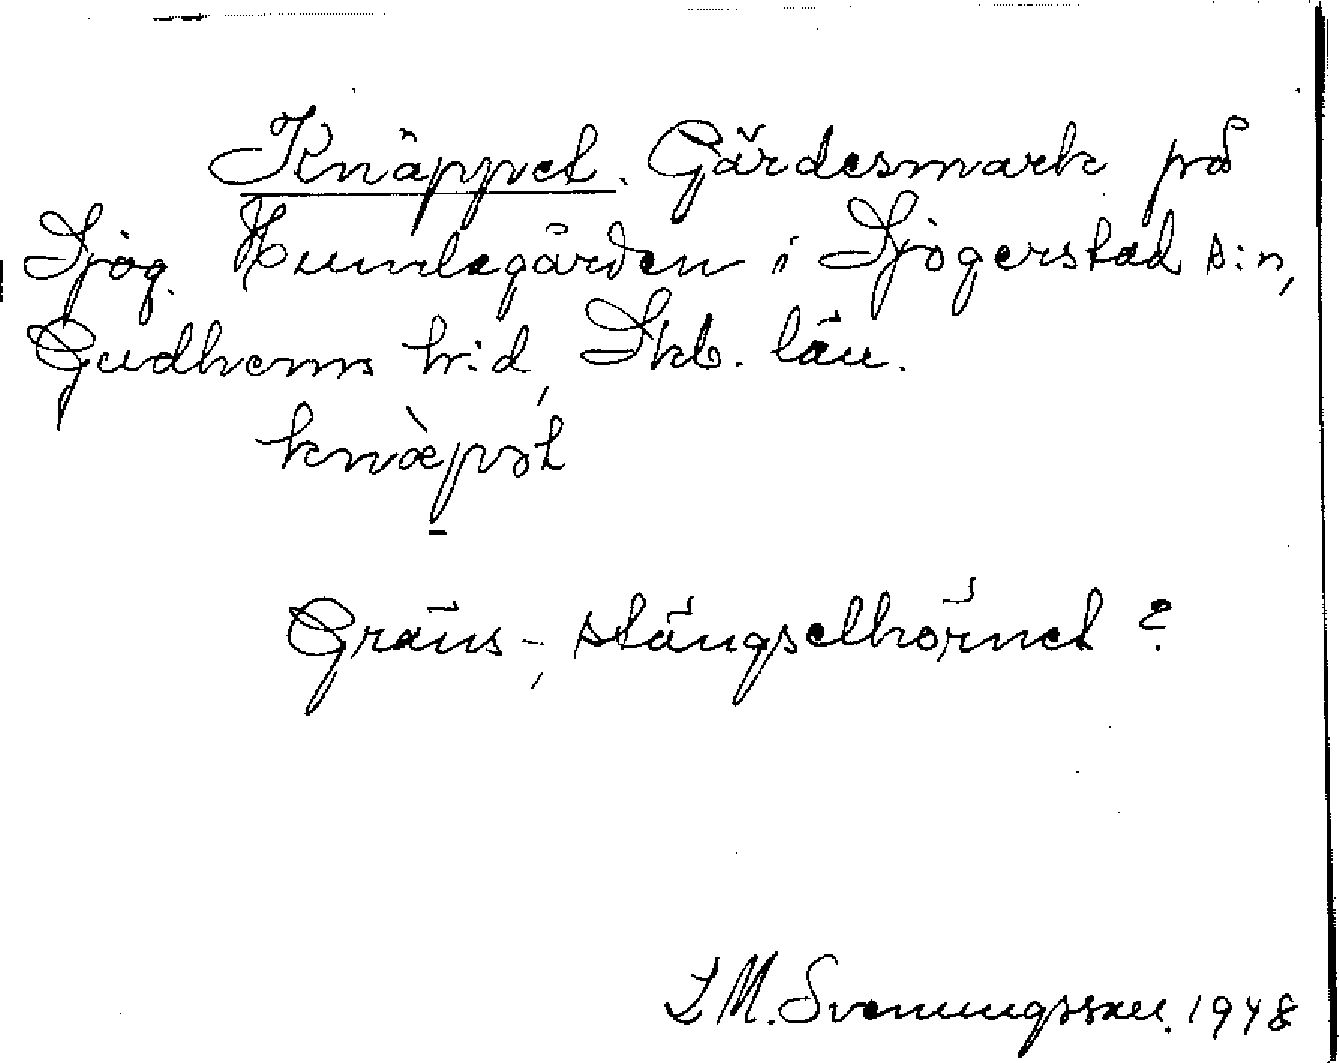 Knäppet. Gärdesmark på
Sjög. Humlegården i Sjögerstad s:n,
Gudhems h:d, Skb. län.
knæ̀pət
Gräns-, stängselhörnet?
L M. Svenungsson. 1948